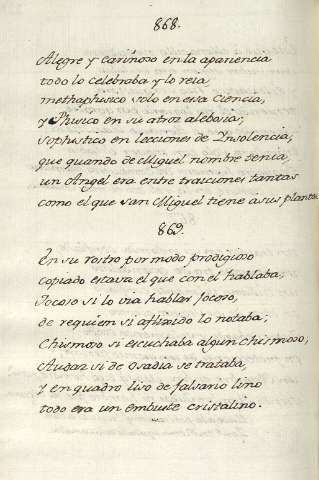 868.
Alegre y cariñoso en la apariencia
todo lo celebraba y lo reia
methaphisico solo en esa Ciencia,
y Phisico en su atroz alebosia;
Sophistico en lecciones de Insolencia,
que quando de Miguel nombre tenia
un Angel era entre traiciones tantas
como el que San Miguel tiene a sus plantas
869.
En su rostro por modo prodigioso
copiado estava el que con el hablaba;
Jocoso si lo via hablar Jocoso,
de requiem si aflixido lo notaba;
Chismoso si escuchaba algun Chismoso,
Audaz si de Osadia se trataba,
y en quadro liso de falsario lino
todo era un embuste cristalino.